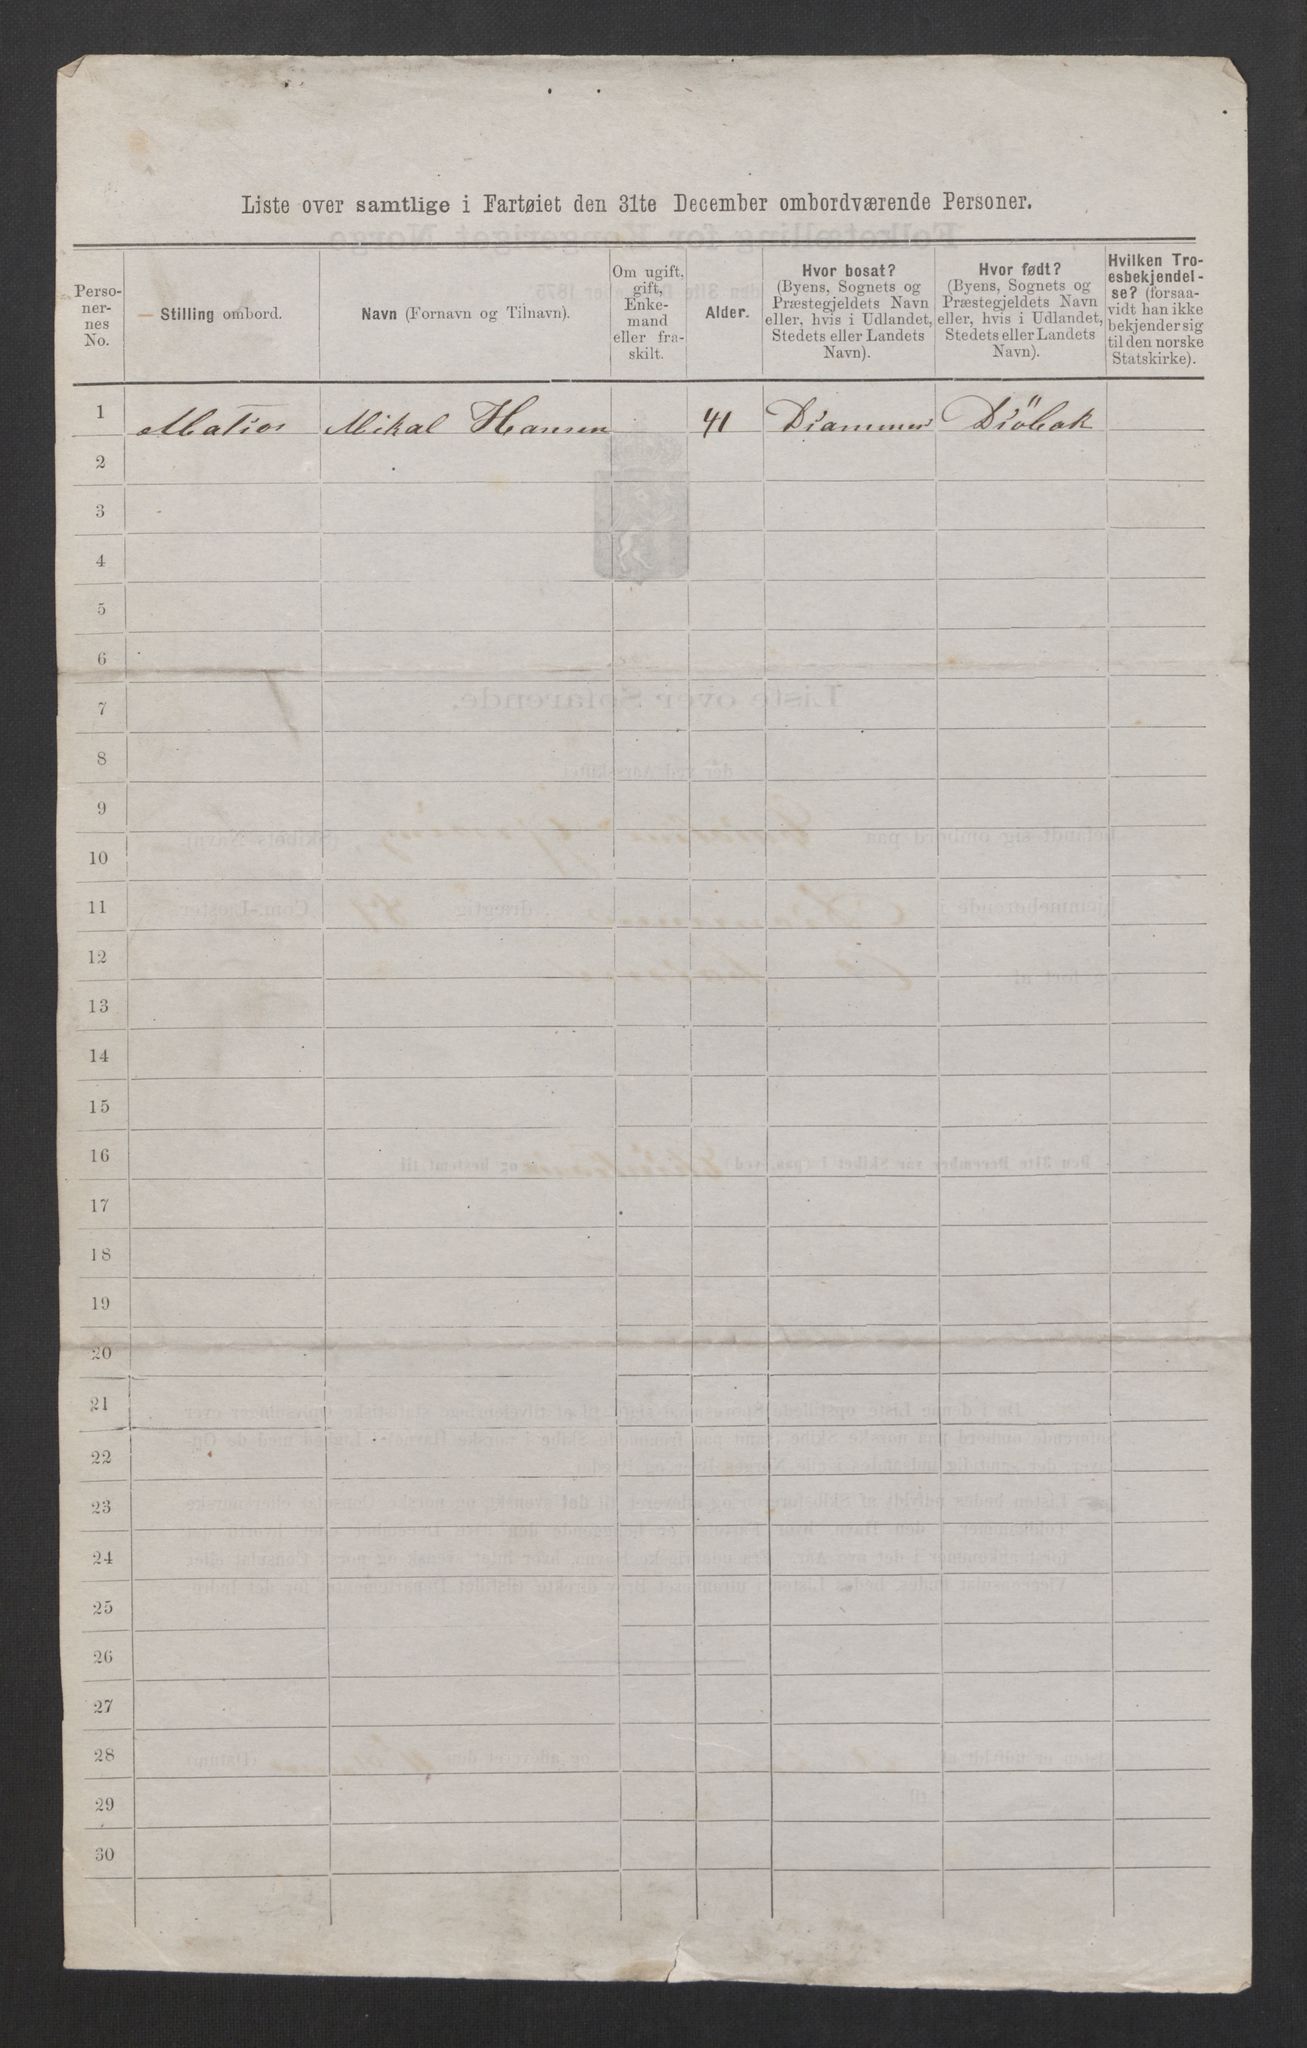 Liste over samtlige i Fartøiet den 31te December ombordværende Personer.
Perso-
ner-
nes
No.
Stilling ombord.
Navn (Fornavn og Tilnavn).
Om ugift,
gift,
Enke-
mand
eller fra-
skilt.
Alder.
Hvor bosat?
(Byens, Sognets og
Præstegjeldets Navn
eller, hvis i Udlandet,
Stedets eller Landets
Navn).
Hvor født?
(Byens, Sognets og
Præstegjeldets Navn
eller, hvis i Udlandet,
Stedets eller Landets
Navn).
Hvilken Tro-
esbekjendel-
se? (forsaa-
vidt han ikke
bekjender sig
til den norske
Statskirke).
1 Matros Mikal Hansen 41 Drammen Dröbak
2
3
4
5
6
7
8
9
10
11
12
13
14
15
16
17
18
19
20
21
22
23
24
25
26
27
28
29
30